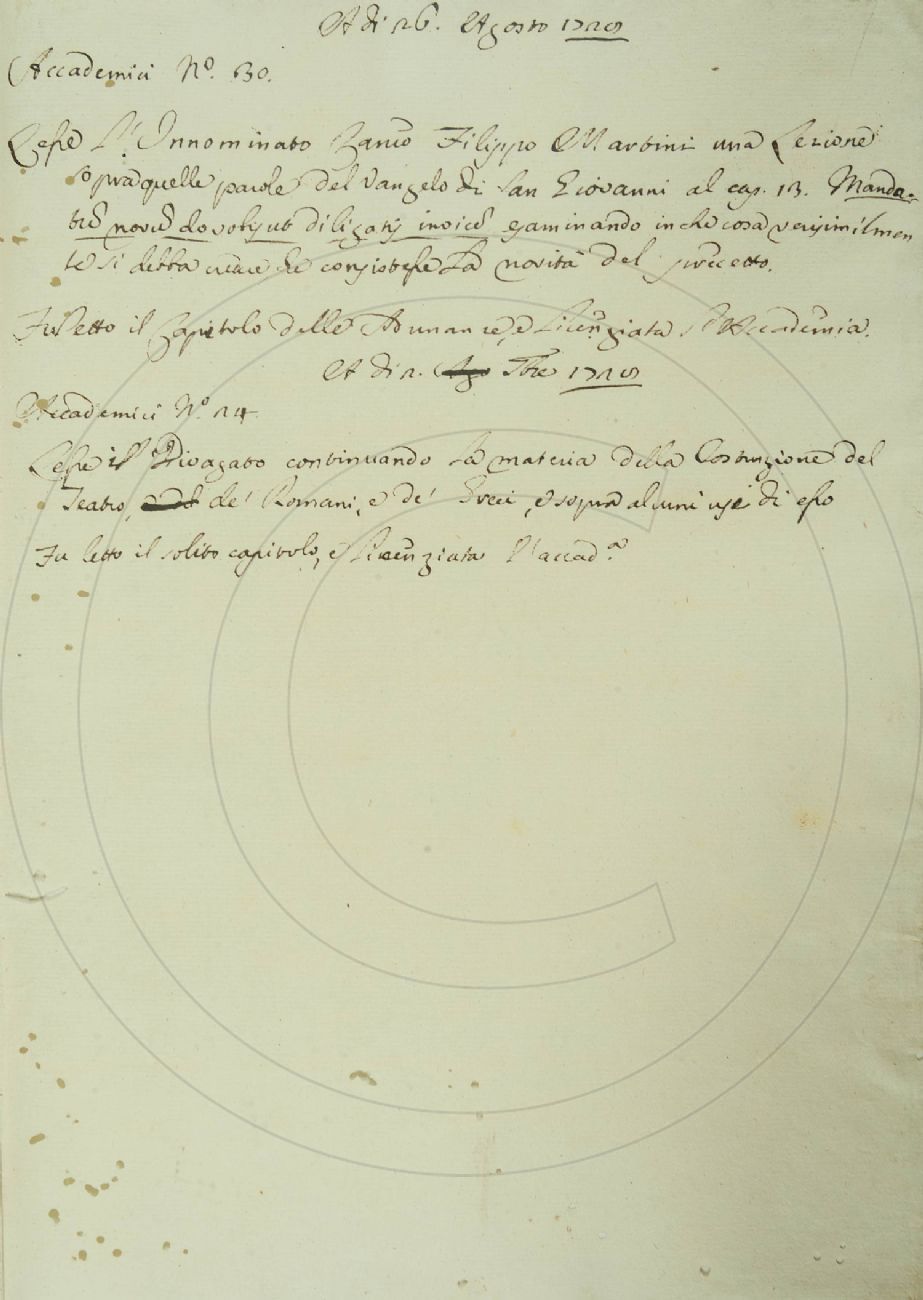 A di 26. Agosto 1728
Accademici N.º 30.
Lesse l'Innominato Filippo Martini una Lezione
sopra quelle parole del Vangelo di San Giovanni al cap. 13. Manda-
tũ novũ do vobis ut diligatis invicẽ esaminando in che cosa verisimilmen
te si debba che consistesse la novità del precetto.
Fu letto il Capitolo delle Adunanze, e Licenziata l'Accademia.
A di 2. Ago 7bre 1728
Accademici N.º 14
Lesse il Divagato continuando la materia della Costruzione del
Teatro, de' Romani, e de' Greci, e sopra alcuni usi di esso
Fu letto il solito capitolo, e Licenziata l'accad.ª